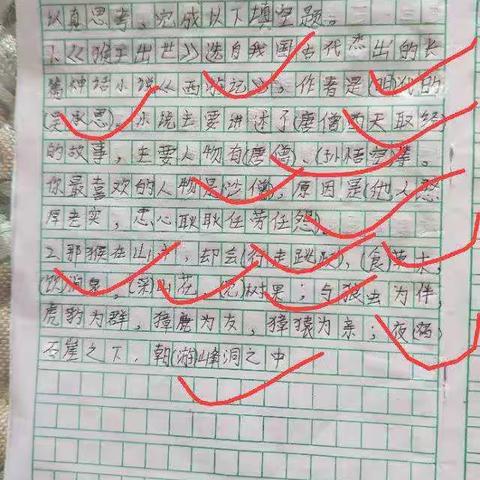 认真思考,完成以下填空题。
1.《猴王出世》选自我国古代杰出的长
篇神话小说《西游记》,作者是(明代)的
(吴承恩),小说主要讲述了(唐僧西天取经)
的故事,主要人物有(唐僧、(孙悟空)等。
你最喜欢的人物是沙僧,原因是(他人憨
厚老实,忠心耿耿任劳任怨)。
2.那猴在山中,却会(行走跳跃),(食草木,
(饮)涧泉,(采)山花,(觅)树果;与狼虫为伴,
虎豹为群,獐鹿为友,猕猿为亲;夜(宿)
石崖之下,朝(游)峰洞之中